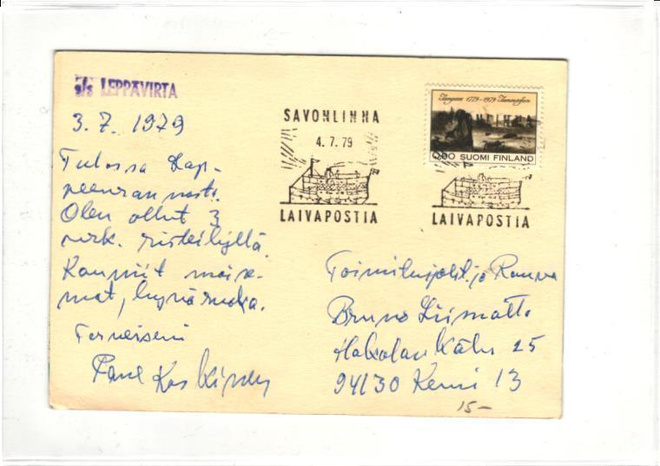 s/s LEPPÄVIRTA
3.7.1979
Tulossa Lap-
peenrannasta.
Olen ollut 3
vrk. risteilyllä.
Kauniit maise-
mat, hyvä ruoka.
Terveisin
SAVONLINNA
4.7.79
LAIVAPOSTIA
Tampere 1779-1979 Tammerfors
0,90 SUOMI FINLAND
LAIVAPOSTIA
ja Rouva
Bruno Liimatta
Hakalankatu 25
94130 Kemi 13
15-